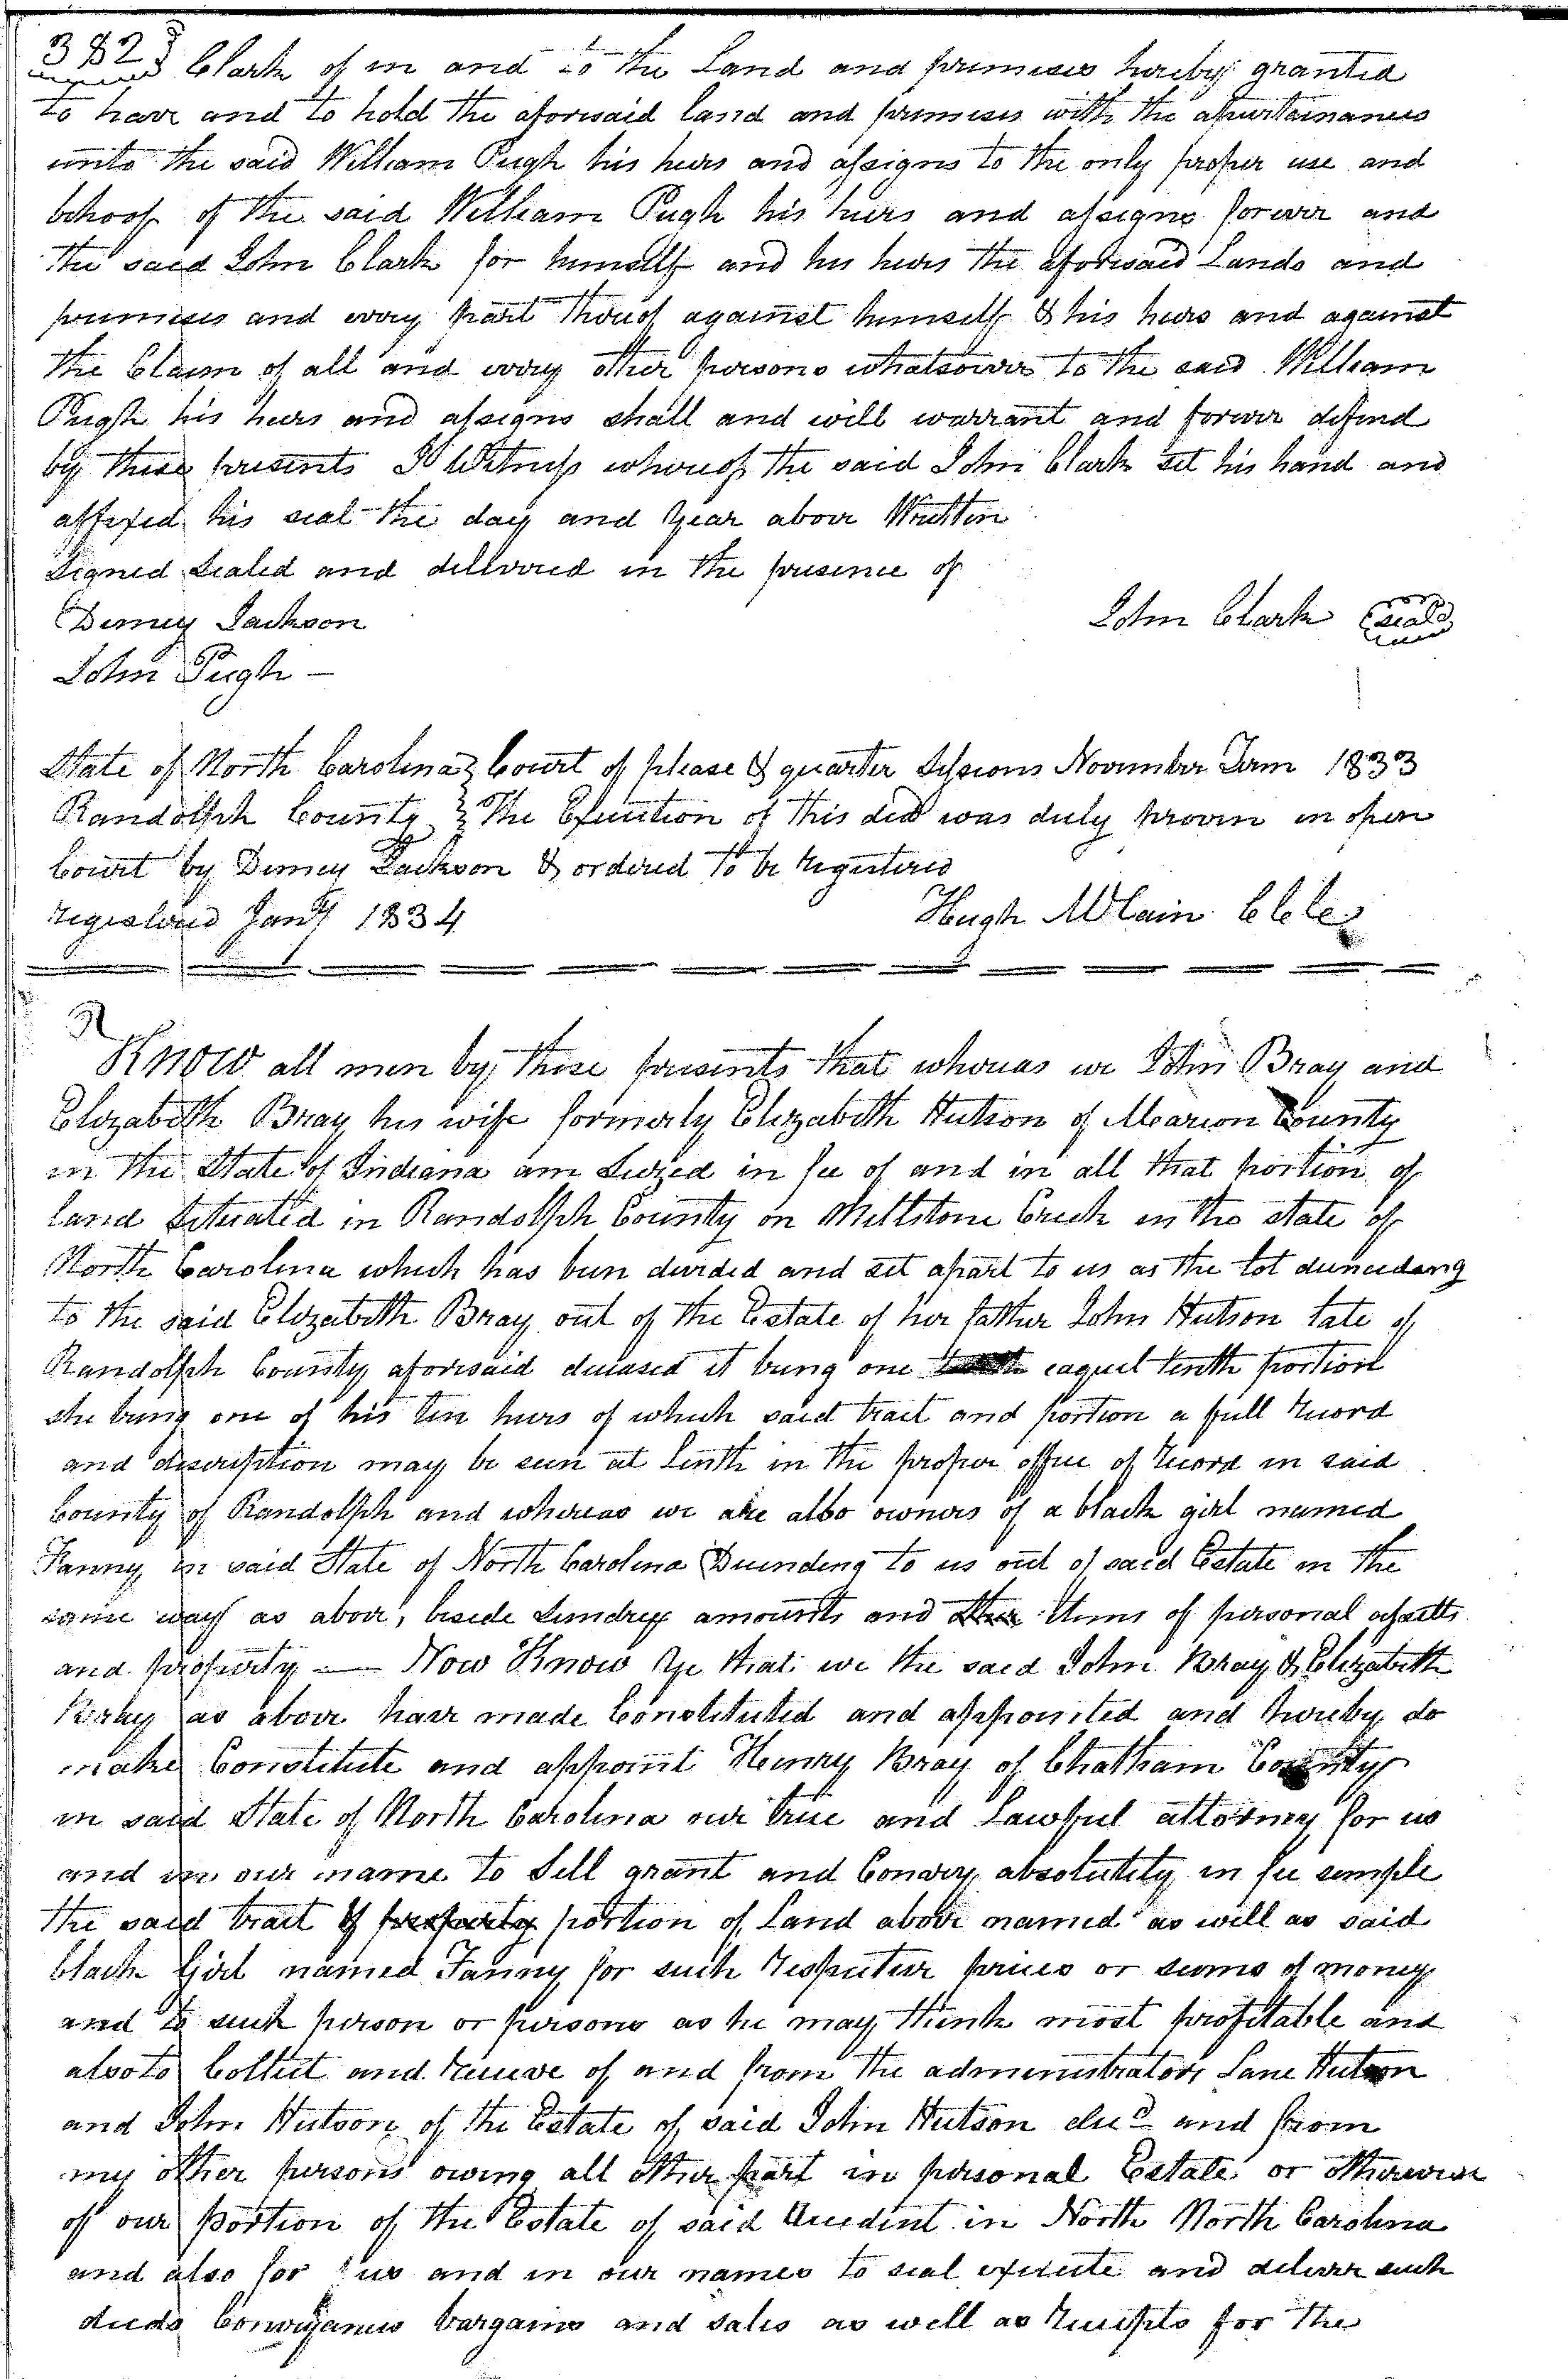 382
Clark of in and to the Land and premises hereby granted
to have and to hold the aforesaid land and premises with the apurtainances
unto the said William Pugh his heirs and assigns to the only proper use and
behoof of the said William Pugh his heirs and assigns forever and
the said John Clark for himself and his heirs the aforesaid Lands and
premises and every part thereof against himself & his heirs and against
the Claim of all and every other persons whatsoever to the said William
Pugh his heirs and assigns shall and will warrant and forever defend
by these presents In Witness whereof the said John Clark set his hand and
affixed his seal the day and year above Written
Signed Sealed and delivered in the presence of
Demey Jackson
John Clark (seal)
John Pugh —
State of North Carolina } Court of please & quarter Sessions November Term 1833
Randolph County } The Execution of this deed was duly proven in open
Court by Demey Jackson & ordered to be registered
registered Jany 1834
Hugh McCain C C C
R
Know all men by these presents that whereas we John Bray and
Elizabeth Bray his wife formerly Elizabeth Hutson of Marion County
in the State of Indiana am Seized in fee of and in all that portion of
land Situated in Randolph County on Millstone Creek in the state of
North Carolina which has been divided and set apart to us as the lot
to the said Elizabeth Bray out of the Estate of her father John Hutson late of
Randolph County aforesaid deceased it being one eaquel tenth portion
she being one of his ten heirs of which said tract and portion a full record
and discription may be seen at lenth in the proper office of record in said
County of Randolph and whereas we are also owners of a black girl named
Fanny in said State of North Carolina to us out of said Estate in the
same way as above, beside Sundrey amounts and Items of personal
and property — Now Know Ye that we the said John Bray & Elizabeth
Bray as above have made Constituted and appointed and hereby do
make Constitute and appoint Henry Bray of Chatham County
in said State of North Carolina our true and Lawful attorney for us
and in our name to Sell grant and Convey absolutely in fee simple
the said tract & property portion of Land above named as well as said
black Girl named Fanny for such respective prices or sums of money
and to such person or persons as he may think most profitable and
also to Collect and receive of and from the administrators Lane Hutson
and John Hutson of the Estate of said John Hutson decd and from
my other persons owing all other part in personal Estate or otherwise
of our portion of the Estate of said in North North Carolina
and also for us and in our names to seal execute and deliver such
deeds Conveyances bargains and sales as well as receipts for the